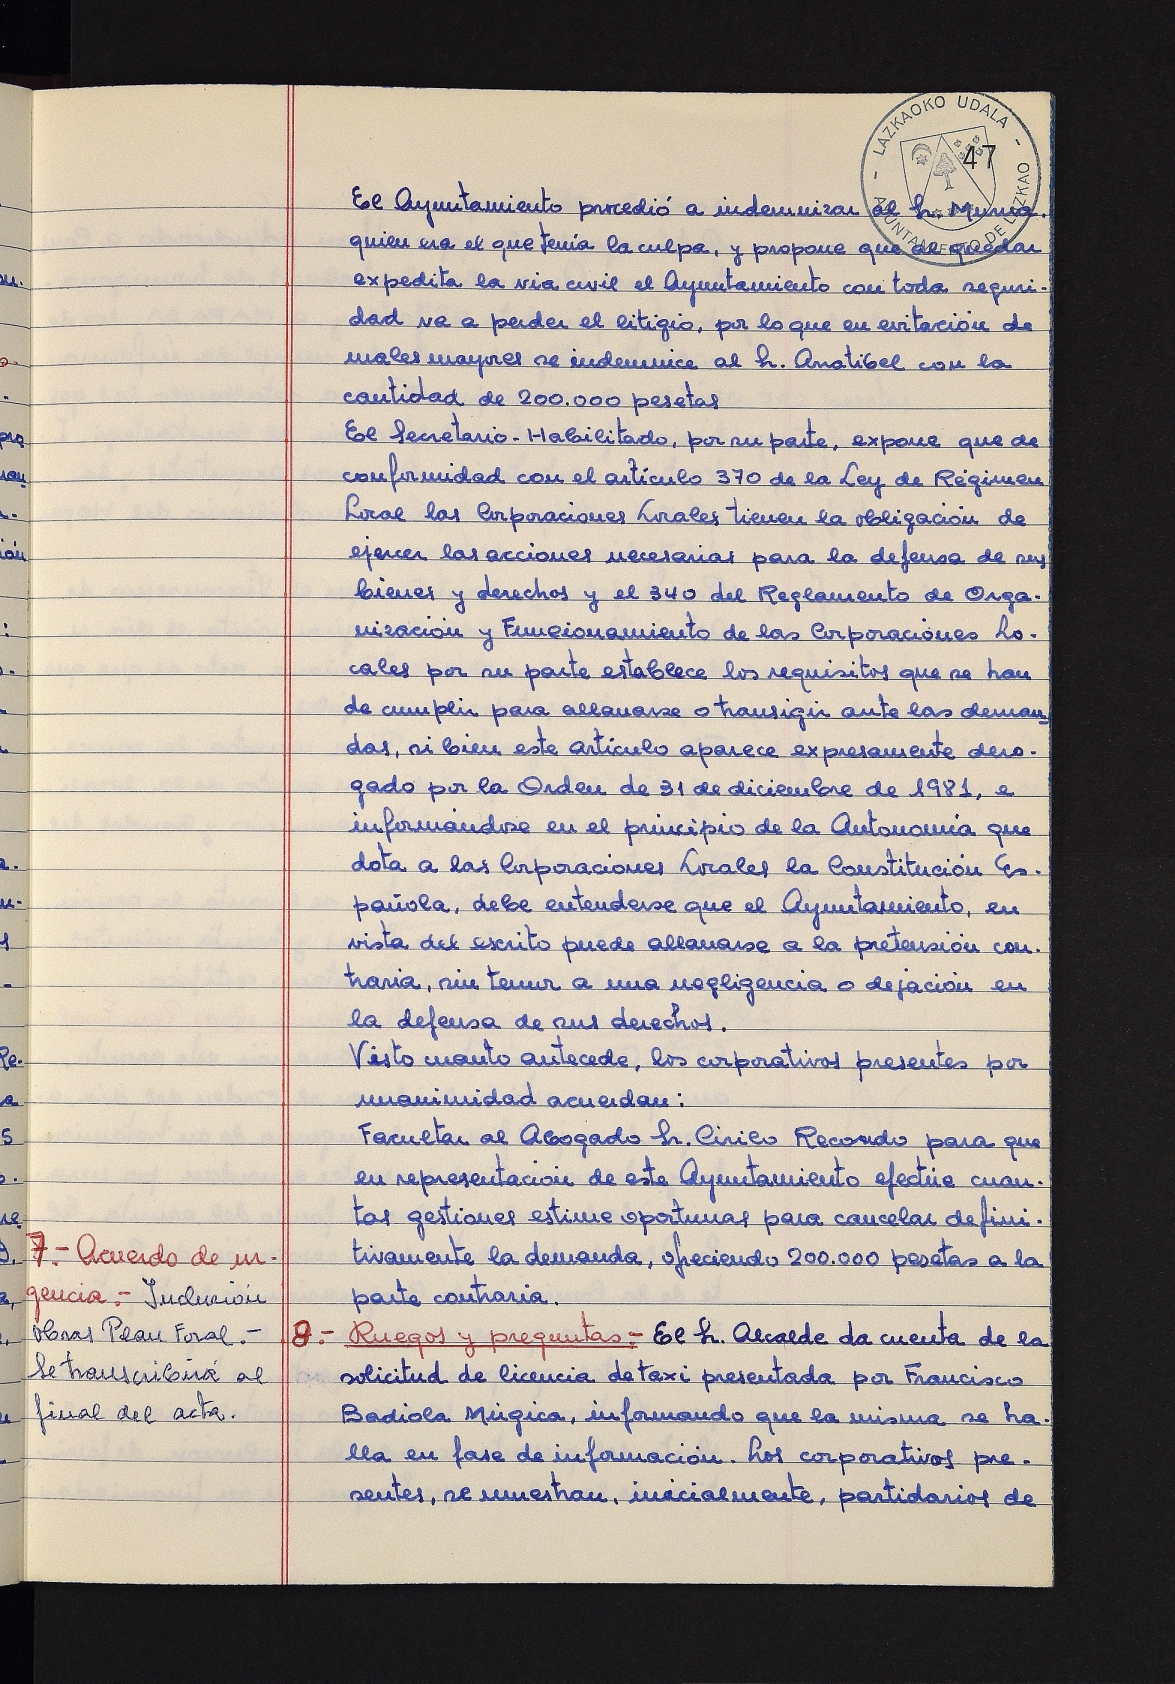 LAZKAOKO UDALA
AYUNTAMIENTO DE LAZKAO
47
El Ayuntamiento procedió a indemnizar al Sr. Munoa.
quien era el que tenía la culpa, y propone que de quedar
expedita la via civil el Ayuntamiento con toda seguri-
dad va a perder el litigio, por lo que en evitación de
males mayores se indemnice al Sr. Anatibel con la
cantidad de 200.000 pesetas
El Secretario-Habilitado, por su parte, expone que de
conformidad con el artículo 370 de la Ley de Régimen
Local las Corporaciones Locales tienen la obligación de
ejercer las acciones necesarias para la defensa de sus
bienes y derechos y el 340 del Reglamento de Orga-
nización y Funcionamiento de las Corporaciones Lo-
cales por su parte establece los requisitos que se han
de cumplir para allanarse o transigir ante las deman
das, si bien este artículo aparece expresamente dero-
gado por la Orden de 31 de diciembre de 1981, e
informándose en el principio de la Autonomía que
dota a las Corporaciones Locales la Constitución Es-
pañola, debe entenderse que el Ayuntamiento, en
vista del escrito puede allanarse a la pretensión con-
traria, sin temor a una negligencia o dejación en
la defensa de sus derechos.
Visto cuanto antecede, los corporativos presentes por
unanimidad acuerdan:
Facultar al Abogado Sr. Cirilo Recondo para que
en representación de este Ayuntamiento efectúe cuan-
tas gestiones estime oportunas para cancelar defini-
tivamente la demanda, ofreciendo 200.000 pesetas a la
parte contraria.
7.- Acuerdo de ur-
gencia.- Inclusión
obras Plan Foral.-
Se transcribirá al
final del acta.
8.- Ruegos y preguntas:- El Sr. Alcalde da cuenta de la
solicitud de licencia de taxi presentada por Francisco
Badiola Múgica, informando que la misma se ha-
lla en fase de información. Los corporativos pre-
sentes, se muestran, inicialmente, partidarios de